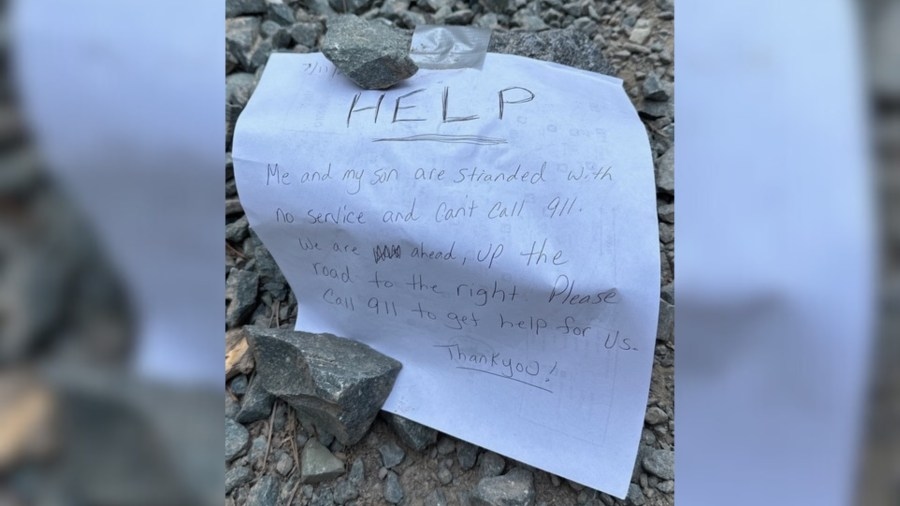 HELP
Me and my son are stranded with
no service and can't call 911.
We are ahead, up the
road to the right. Please
call 911 to get help for us.
Thankyou!